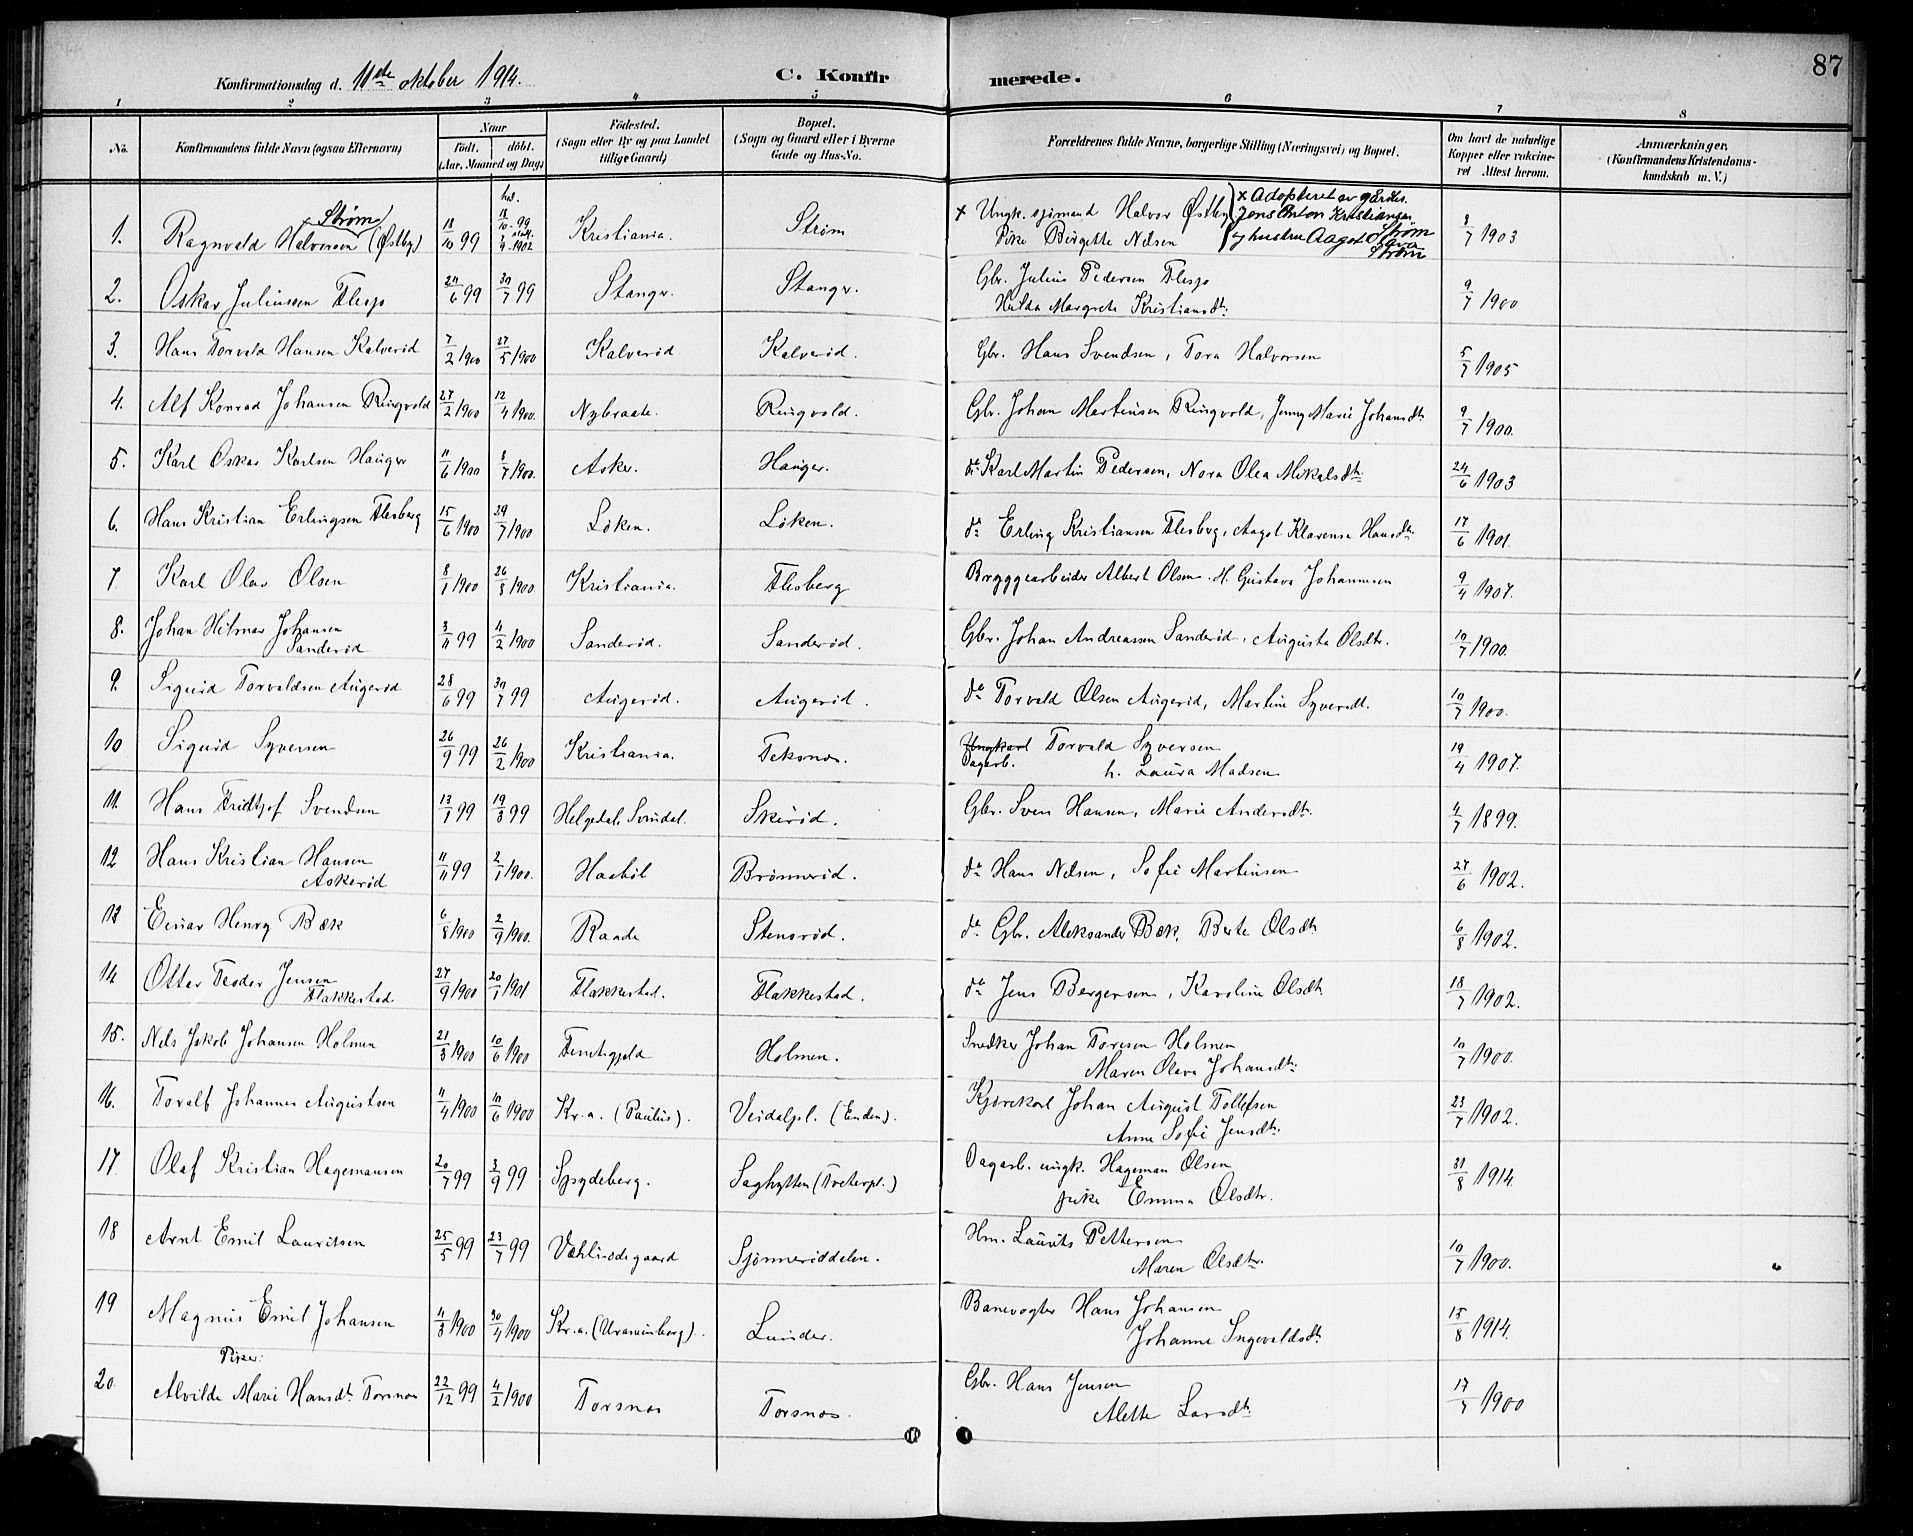 87
Konfirmationsdag d. 11de oktober 1914.
C. Konfirmerede.
1 2 3 4 5 6 7 8
No.
Konfirmandens fulde Navn (ogsaa Efternavn)
Naar
født. døbt.
(Aar, Maaned og Dag)
Födested.
(Sogn eller By og paa Landet
tillige Gaard)
Bopæl.
(Sogn og Gaard eller i Byerne
Gade og Hus-No.
Forældrenes fulde Navne, borgerlige Stilling (Næringsvei) og Bopæl.
Om havt de naturlige
Kopper eller vaccine-
ret Attest herom.
Anmærkninger.
(Konfirmandens Kristendoms-
kundskab m. V.)
1. Ragnvald Halvorsen (Østby) Strøm 18/10 99 18/10 99 1902 Kristiania. Strøm × Ungk. sjømand Halvor Østby
Pike Birgette Nilsen × Adopteret av gårdbr. Jens Anton Kristiansen Strøm
og hustru Aagot Strøm 8/7 1903
2. Oskar Juliussen Flesjo 24/6 99 30/7 99 Stangv. Stangv. Gbr. Julius Pedersen Flesjo
Hulda Margrete Kristiansdtr. 9/7 1900
3. Hans Torvald Hansen Kalverød 7/2 1900 27/5 1900 Kalverød Kalverød. Gbr. Hans Svendsen, Tora Halvorsen 5/7 1905
4. Alf Konrad Johansen Ringvold 27/2 1900 12/4 1900. Nybraate. Ringvold. Gbr. Johan Martinsen Ringvold, Jenny Marie Johansdtr 9/7 1900.
5. Karl Oskar Karlsen Hauger 11/6 1900 8/7 1900. Asker. Hauger. do Karl Martin Pedersen, Nora Olea Mikalsdtr 24/6 1903
6. Hans Kristian Erlingsen Flesberg 15/6 1900 29/7 1900 Løken. Løken. do Erling Kristiansen Flesberg, Aagot Klarense Hansdtr 17/6 1901.
7 Karl Olav Olsen 8/1 1900 26/8 1900 Kristiania. Flesberg Bryggearbeider Albert Olsen. H. Gustava Johannesen 9/4 1907.
8. Johan Hilmar Johansen
Sanderød 3/11 99 4/2 1900 Sanderød. Sanderød. Gbr. Johan Andreassen Sanderød, Augusta Olsdtr. 10/7 1900.
9. Sigurd Torvaldsen Augerød 28/6 99 30/7 99 Augerød. Augerød. do Torvald Olsen Augerød, Martine Syversdt. 10/7 1900.
10 Sigurd Syversen 26/9 99 26/2 1900 Kristiania. Teksnæs. Ungkarl Torvald Syversen
Dagarb. h. Laura Madsen 19/4 1907.
11. Hans Fridtjof Svendsen 13/1 99 19/3 99 Helgedal. Svindal. Skirød. Gbr. Sven Hansen, Marie Andersdtr. 4/7 1899.
12 Hans Kristian Hansen
Askerød 11/11 99 2/1 1900. Haabøl Brønnerød. do Hans Nilsen, Sofie Martinsen 27/6 1902.
13 Einar Henry Bæk 6/8 1900 2/9 1900. Raade Stensrød. do Gbr. Aleksander Bæk, Berte Olsdtr 6/8 1902.
14 Otter Teodor Jensen
Flakkestad 27/9 1900 20/1 1901 Flakkestad. Flakkestad. do Jens Bergersen, Karoline Olsdtr 18/7 1902.
15. Nils Jakob Johansen Holmen 21/3 1900 10/6 1900 Holmen. Snedker Johan Toresen Holmen
Maren Olava Johansdtr. 10/7 1900.
16. Toralf Johannes Augustsen 11/4 1900 10/6 1900 Kr.a. (Paulus). Veidalpl. (Enden). Kjørekarl Johan August Tollefsen
Anne Sofie Jensdtr. 23/7 1902.
17. Olaf Kristian Hagemansen 20/7 99 3/9 99 Spydeberg. Saghytten (Tveterpl.) Dagarb. ungk. Hageman Olsen
pike Emma Olsdtr. 31/8 1914
18 Arnt Emil Lauritsen 25/5 99 23/7 99 Væhliødegaard Sjønnerøddelen. Hm. Laurits Pettersen
Maren Olsdtr. 10/7 1900.
19 Magnus Emil Johansen 4/3 1900 30/4 1900 Kr.a. (Uranienborg). Lunder. Banevogter Hans Johansen
Johanne Ingevaldsdtr. 15/8 1914.
Piker.
20. Alvilde Marie Hansdt. Torsnæs 22/12 99 4/2 1900 Torsnæs Torsnæs. Gbr. Hans Jensen
Alette Larsdtr 17/7 1900